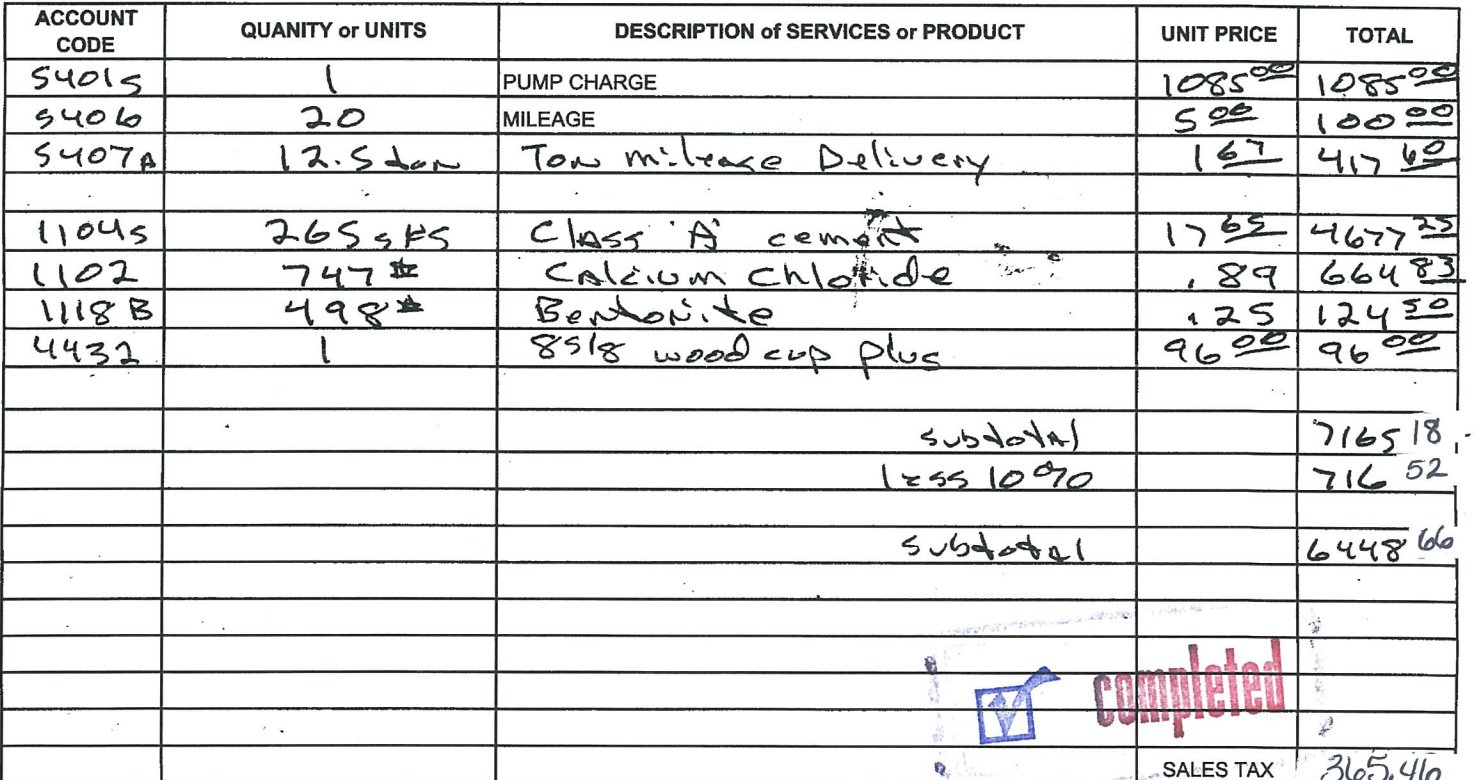 ACCOUNT CODE QUANITY or UNITS DESCRIPTION of SERVICES or PRODUCT UNIT PRICE TOTAL
5401S 1 PUMP CHARGE 1085 00 1085 00
5406 20 MILEAGE 5 00 100 00
5407A 12.5 ton Ton mileage Delivery 1 67 417 60
1104S 265 sKS Class 'A' cement 17 65 4677 25
1102 747# Calcium Chloride .89 664 83
1118 B 498# Bentonite .25 124 50
4432 1 8 5/8 wood cup plug 96 00 96 00
subtotal 7165 18
less 10% 716 52
subtotal 6448 66
completed
SALES TAX 365.46